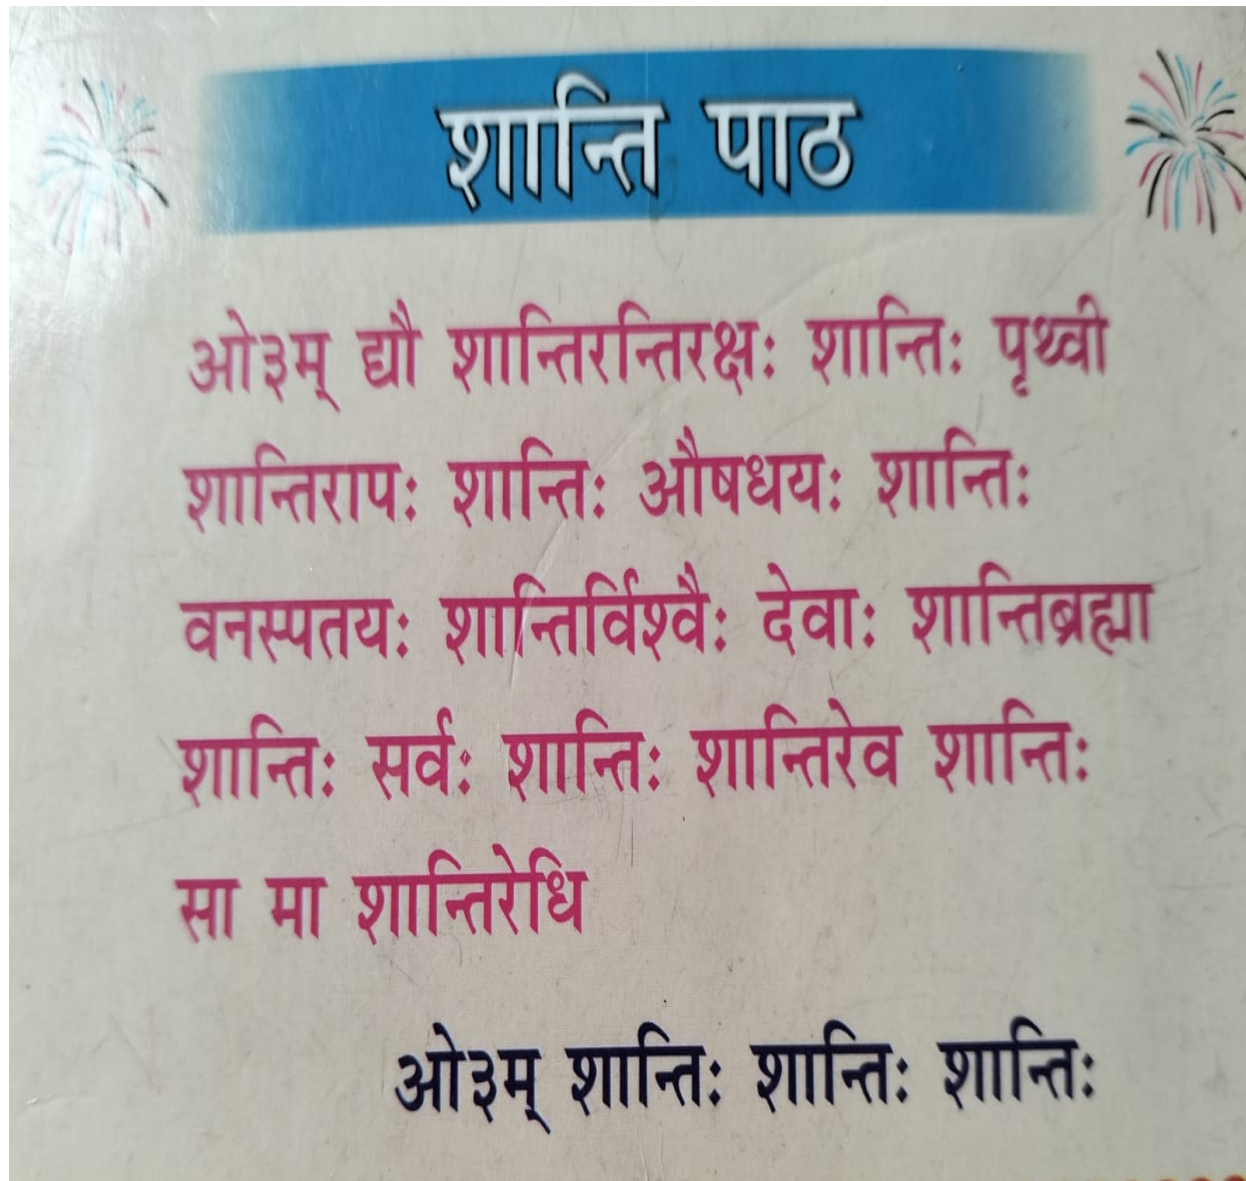 शान्ति पाठ
ओ३म् द्यौ शान्तिरन्तिरक्षः शान्तिः पृथ्वी
शान्तिरापः शान्तिः औषधयः शान्तिः
वनस्पतयः शान्तिर्विश्वैः देवाः शान्तिब्रह्मा
शान्तिः सर्वः शान्तिः शान्तिरेव शान्तिः
सा मा शान्तिरेधि
ओ३म् शान्तिः शान्तिः शान्तिः